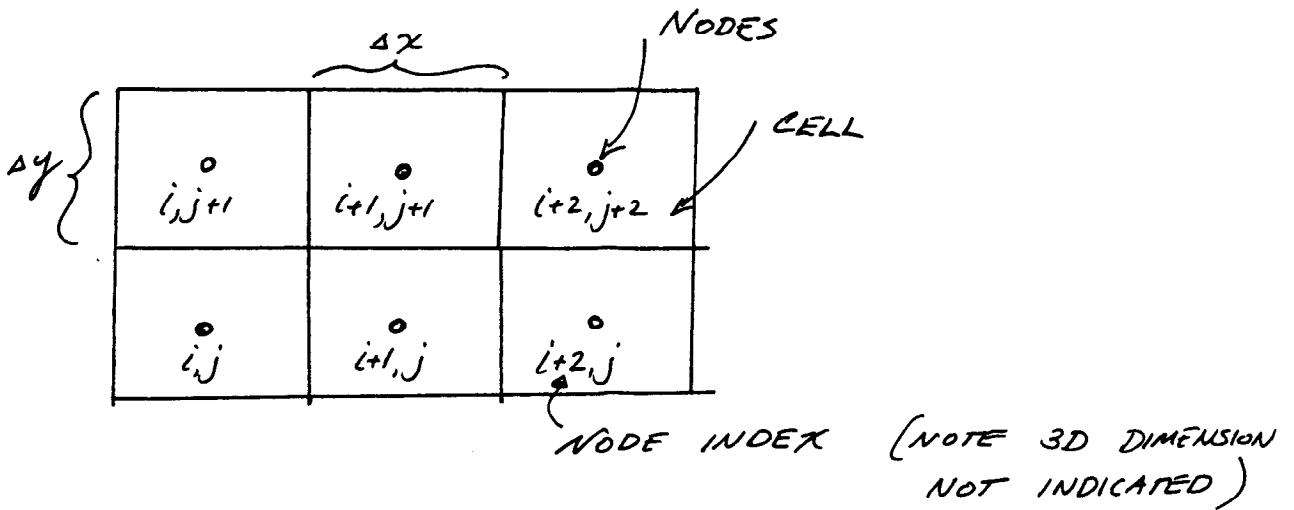 NODES
Δx
CELL
Δy
i,j+1
i+1,j+1
i+2,j+2
i,j
i+1,j
i+2,j
NODE INDEX (NOTE 3D DIMENSION
NOT INDICATED)